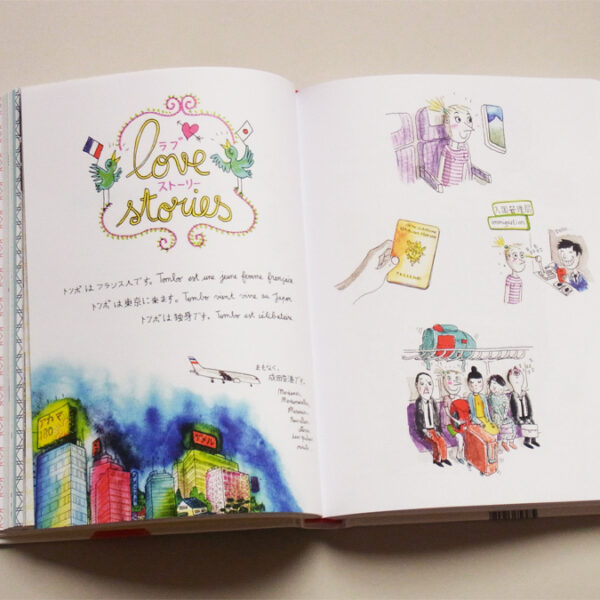 ラブ
love
ストーリー
stories
トンボ は フランス人 です。 Tombo est une jeune femme française
トンボ は 東京に 来ます。 Tombo vient vivre au Japon
トンボ は 独身です。 Tombo est célibataire
まもなく、
成田空港です。
Mesdames,
Mesdemoiselles,
Messieurs,
入国管理局
immigration
PASSEPORT